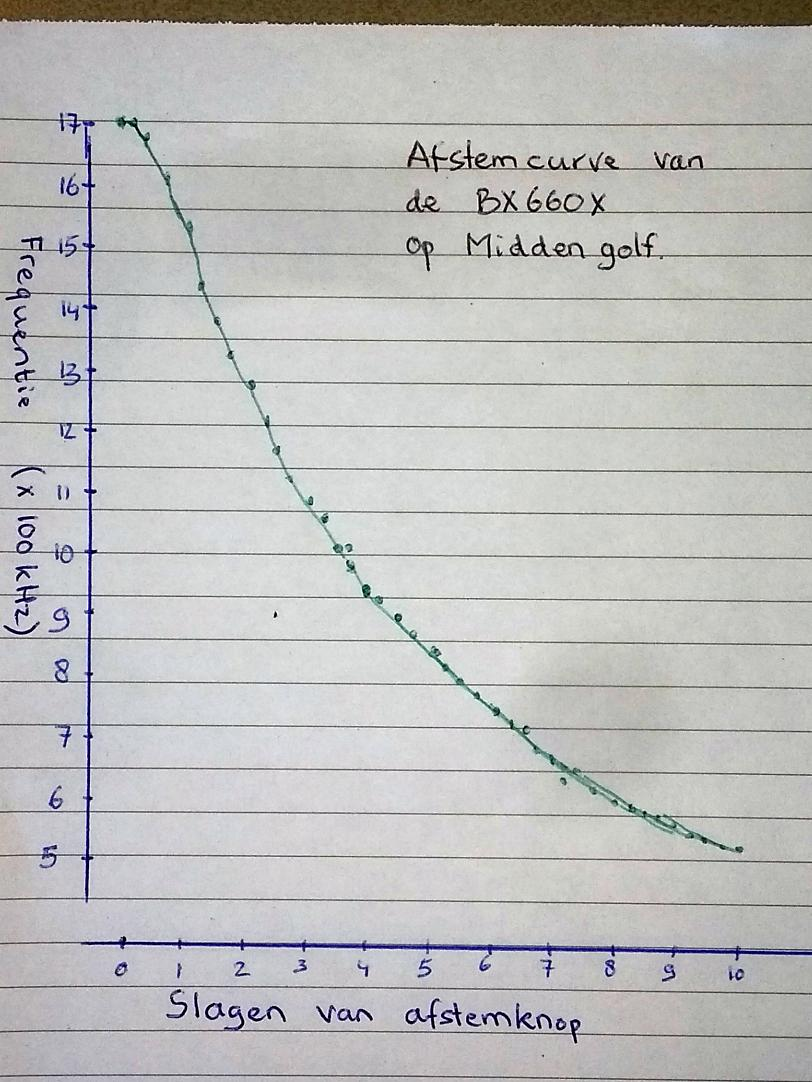 Afstemcurve van
de BX660X
op Middengolf.
Frequentie (x 100 kHz)
17
16
15
14
13
12
11
10
9
8
7
6
5
0 1 2 3 4 5 6 7 8 9 10
Slagen van afstemknop